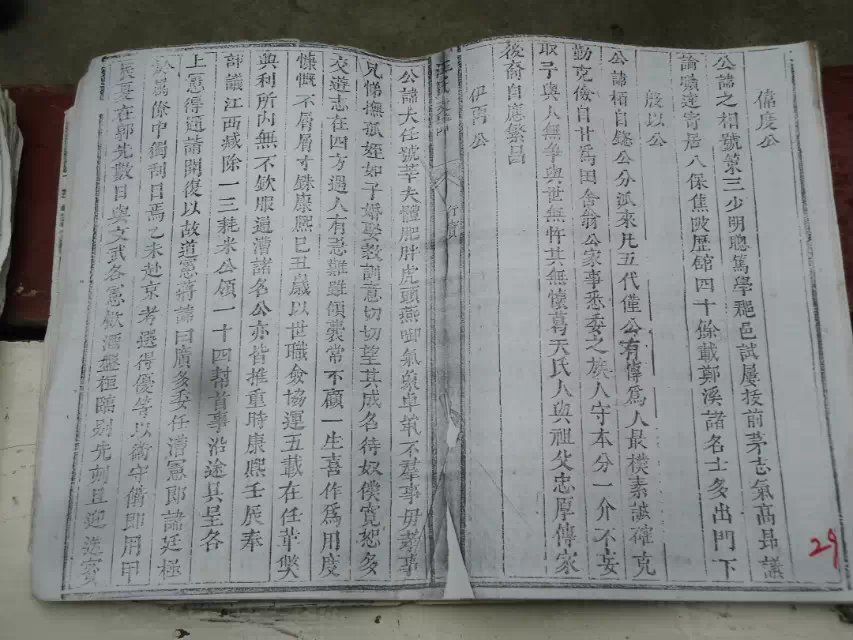 僃度公
公諱之相號第三少明聰篤學
邑試屢拔前茅志氣高昂議
論
逢寄居八保焦陂歷館四十餘載鄭溪諸名士多出門下
殷以公
公諱栢自鎡公分派來凡五代僅公有傳爲人最樸素誠確克
勤克儉自甘爲田舍翁公家事悉委之族人守本分一介不妄
取予與人無爭與世無忤其無懷葛天氏人與祖父忠厚傳家
後裔自應繁昌
伊再公
公諱大任號莘夫體肥胖虎頭燕頷氣象卓犖不羣事毋孝事
兄悌撫孤姪如子婚娶教訓意切切望其成名待奴僕寬恕多
交遊志在四方過人有急難雖傾囊常不顧一生喜作爲用度
慷慨不屑屑寸銖康熙己丑歲以世職僉協運五載在任革獘
興利所內無不欽服通漕諸名公亦皆推重時康熙壬辰奉
部議江西減除一三耗米公領一十四幫首事沿途具呈各
上憲得通請開復以故道憲蔣諱曰廣多委任漕憲郎諱廷極
於屬僚中獨刮目焉乙未赴京考選得優等以衛守僃即用甲
辰憂在鄕先數日與文武各憲飲酒盤桓臨别先刻且迎送賓
29